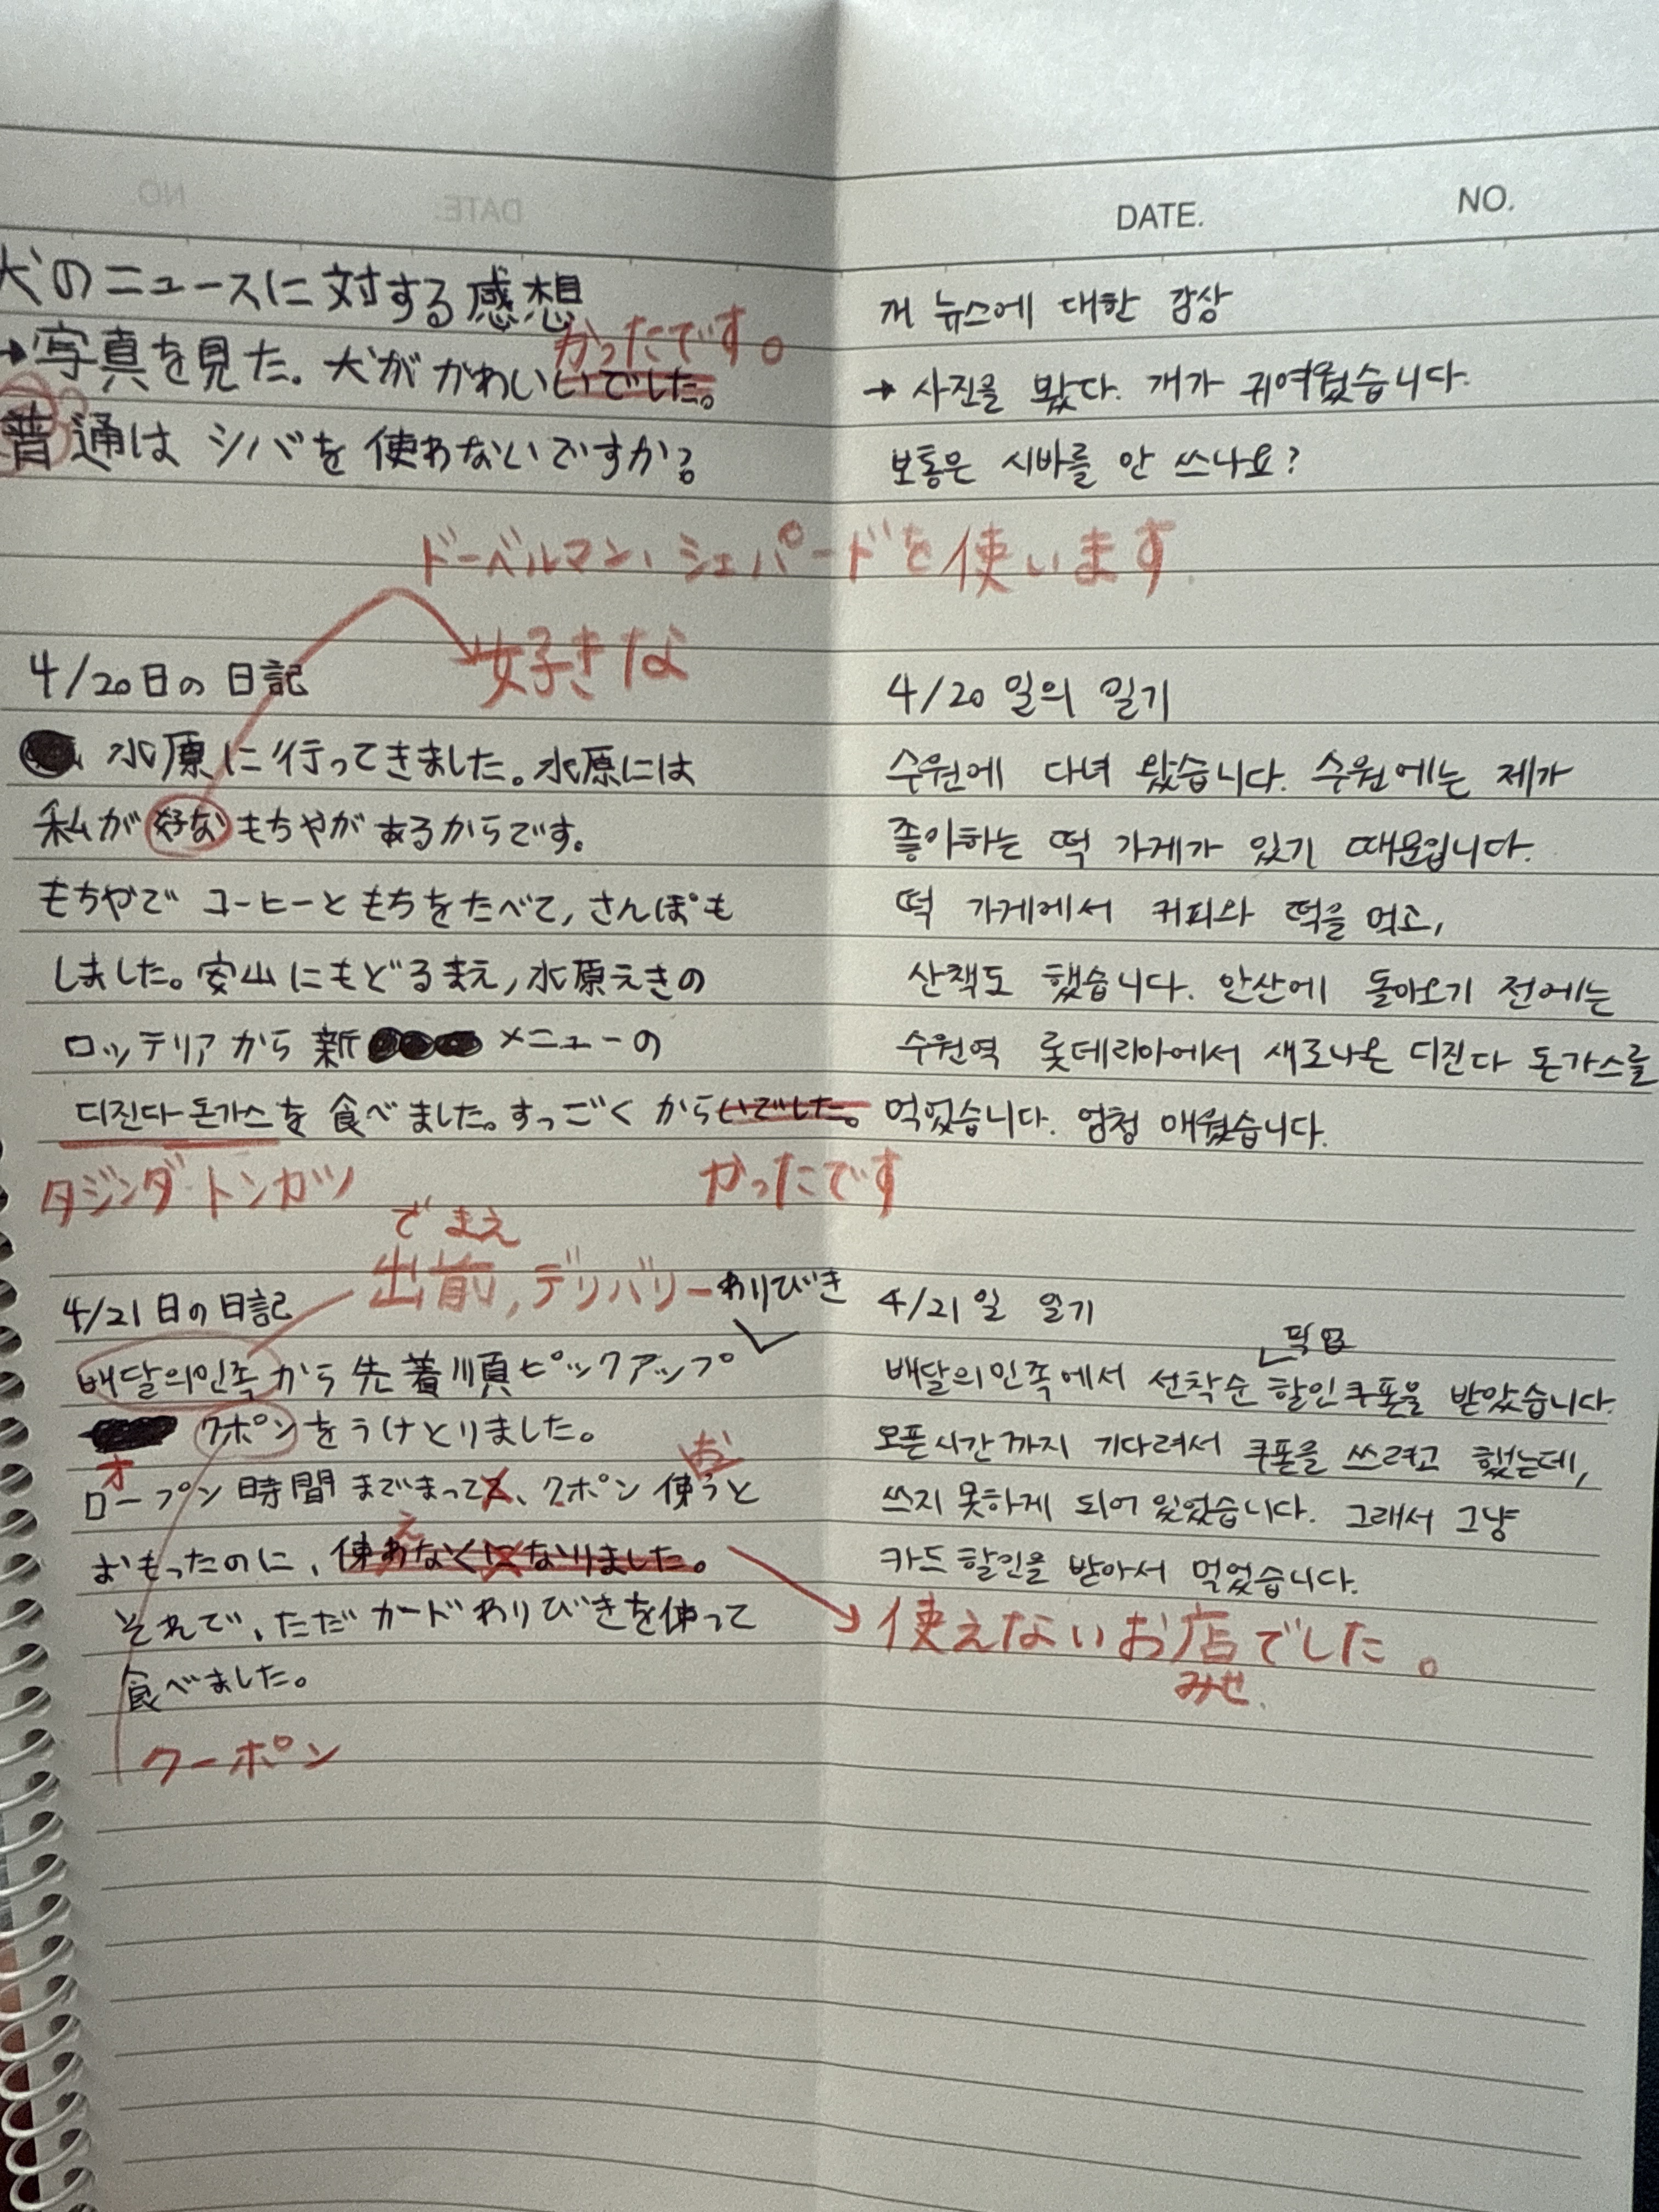 NO.
DATE.
DATE.
NO.
犬のニュースに対する感想
かったです。
→写真を見た。犬がかわいいでした。
普通は シバを使わないですか?
ドーベルマン、シェパードを使います
好きな
4/20日の日記
水原に行ってきました。水原には
私が好なもちやがあるからです。
もちやで コーヒーともちをたべて,さんぽも
しました。安山にもどるまえ,水原えきの
ロッテリアから新 メニューの
디진다돈가스を食べました。すっごくからいでした。
タジンダトンカツ
かったです
でまえ
出前,デリバリー
わりびき
4/21日の日記
배달의민족から先着順ピックアップ
クポンをうけとりました。
オ
お
ロープン時間までまって、クポン使うと
え
おもったのに、使わなくになりました。
それで、ただカードわりびきを使って
食べました。
クーポン
개 뉴스에 대한 감상
→ 사진을 봤다. 개가 귀여웠습니다.
보통은 시바를 안 쓰나요?
4/20 일의 일기
수원에 다녀 왔습니다. 수원에는 제가
좋아하는 떡 가게가 있기 때문입니다.
떡 가게에서 커피와 떡을 먹고,
산책도 했습니다. 안산에 돌아오기 전에는
수원역 롯데리아에서 새로나온 디진다 돈가스를
먹었습니다. 엄청 매웠습니다.
4/21일 일기
픽업
배달의민족에서 선착순 할인쿠폰을 받았습니다.
오픈시간까지 기다려서 쿠폰을 쓰려고 했는데,
쓰지 못하게 되어 있었습니다. 그래서 그냥
카드 할인을 받아서 먹었습니다.
使えないお店でした。
みせ